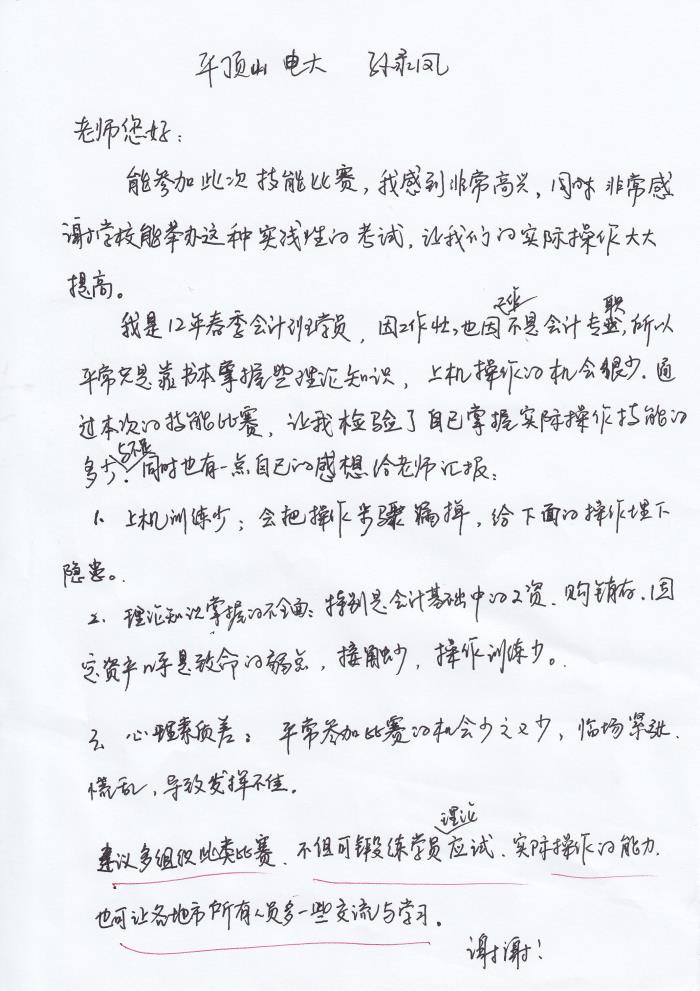 平顶山电大 孙承凤
老师您好：
能参加此次技能比赛，我感到非常高兴，同时非常感
谢学校能举办这种实践性的考试，让我们的实际操作大大
提高。
我是12年春季会计班学员，因工作忙，也因不是会计专业，所以
职
平常只是靠书本掌握些理论知识，上机操作的机会很少。通
过本次的技能比赛，让我检验了自己掌握实际操作技能的
与不足
多少。同时也有一点自己的感想给老师汇报：
1. 上机训练少；会把操作步骤漏掉，给下面的操作埋下
隐患。
2. 理论知识掌握的不全面：特别是会计基础中的工资、购销存、固
定资产等是致命的弱点，接触少，操作训练少。
三、心理素质差：平常参加比赛的机会少之又少，临场紧张、
慌乱，导致发挥不佳。
理论
建议多组织此类比赛、不但可锻练学员应试、实际操作的能力，
也可让各地市所有人员多一些交流与学习。
谢谢！